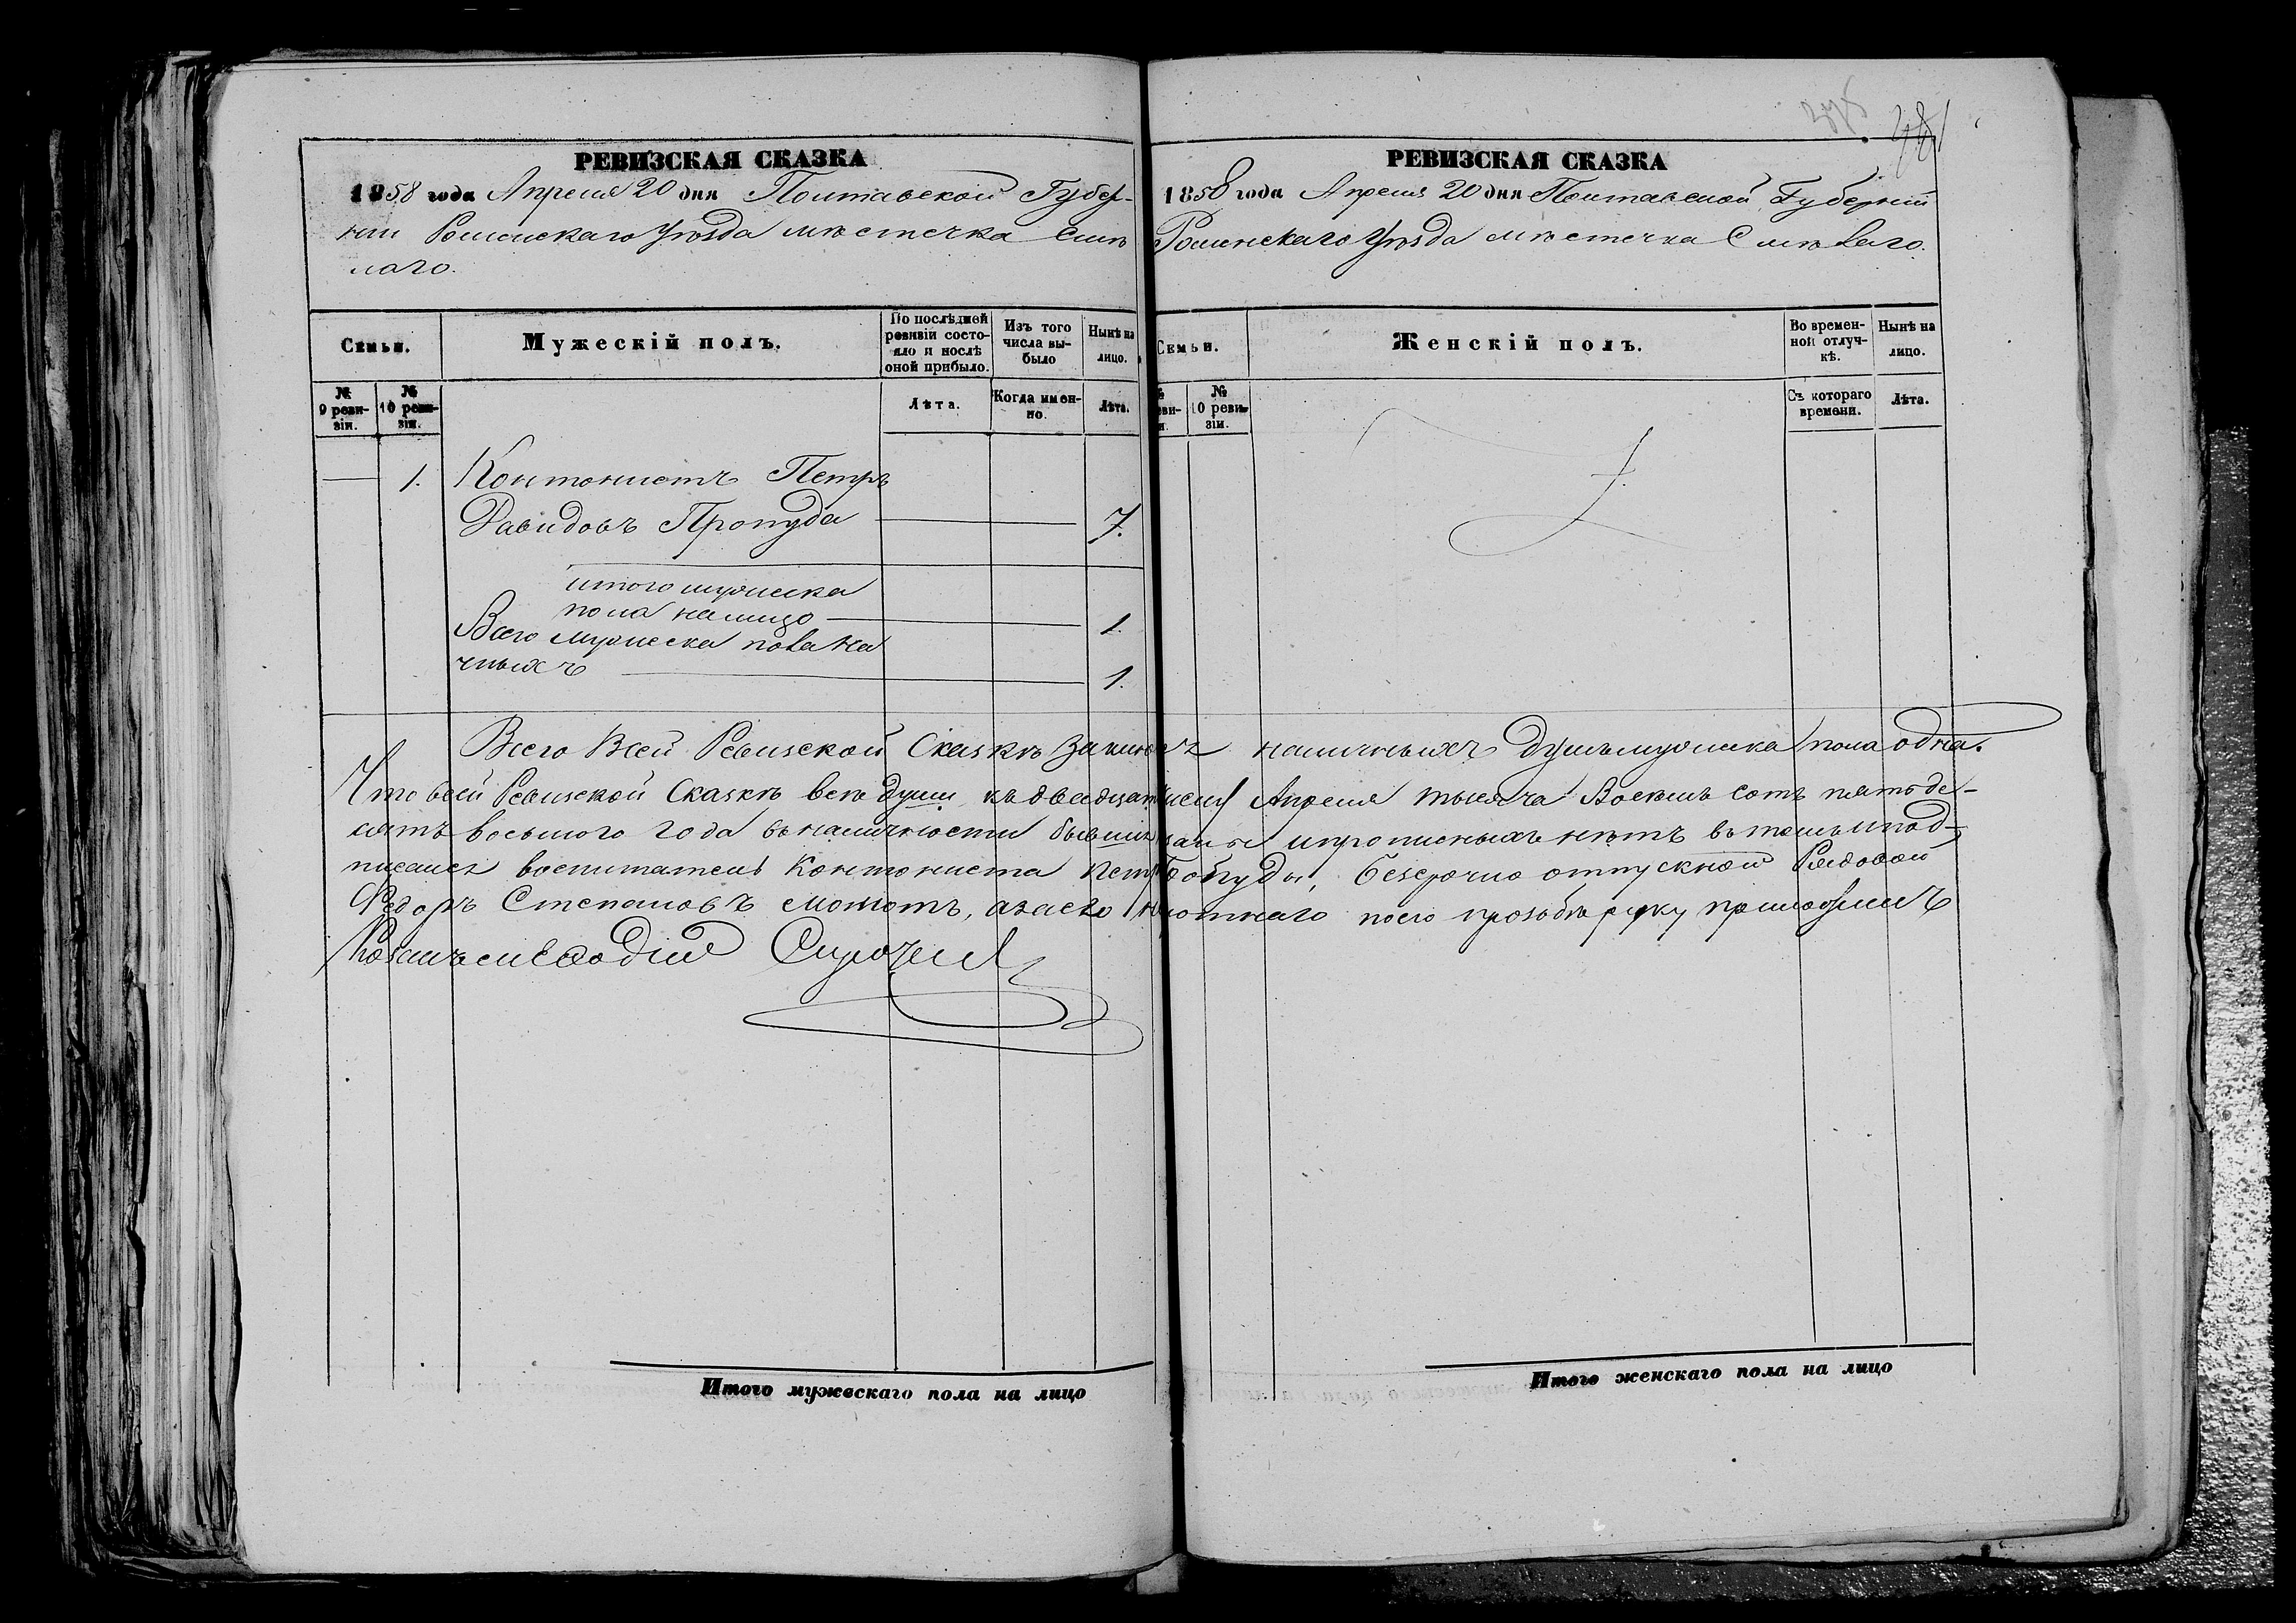 РЕВИЗСКАЯ СКАЗКА
1858 года Апреля 20 дня Полтавской Губер-
нии Роменскаго Уѣзда мѣстечка Смѣ
лаго.
Семьи.
Мужескій полъ.
По послѣдней ревизіи состояло и послѣ оной прибыло.
Изъ того числа выбыло
Нынѣ на лицо.
№ 9 ревизіи.
№ 10 ревизіи.
Лѣта.
Когда именно.
Лѣта.
1. Контонистъ Петръ
Давидовъ Пропуда 7.
итого мужеска
пола налицо 1.
Всего мужеска пола на
чныхъ 1.
РЕВИЗСКАЯ СКАЗКА
1858 года Апреля 20 дня Полтавской Губерніи
Роменскаго Уѣзда мѣстечка Смѣлаго.
Семьи.
Женскій полъ.
Во временной отлучкѣ.
Нынѣ на лицо.
10 ревизіи.
Съ котораго времени.
Лѣта.
Всего Всей Ревизской Сказкѣ наличныхъ душъ мужеска пола одна.
Что всей Ревизской Сказкѣ всѣ души къ двадцат Апреля тысяча Восемь сотъ пятьде-
сятъ восьмого года въ наличности бывшие и прописныхъ нѣтъ въ томъ и под-
писался воспитатель Контониста Безсрочно отпускной Рядовой
Федоръ Степановъ а за его по его прозьбѣ руку приложилъ
Козакъ
Итого мужескаго пола на лицо
Итого женскаго пола на лицо